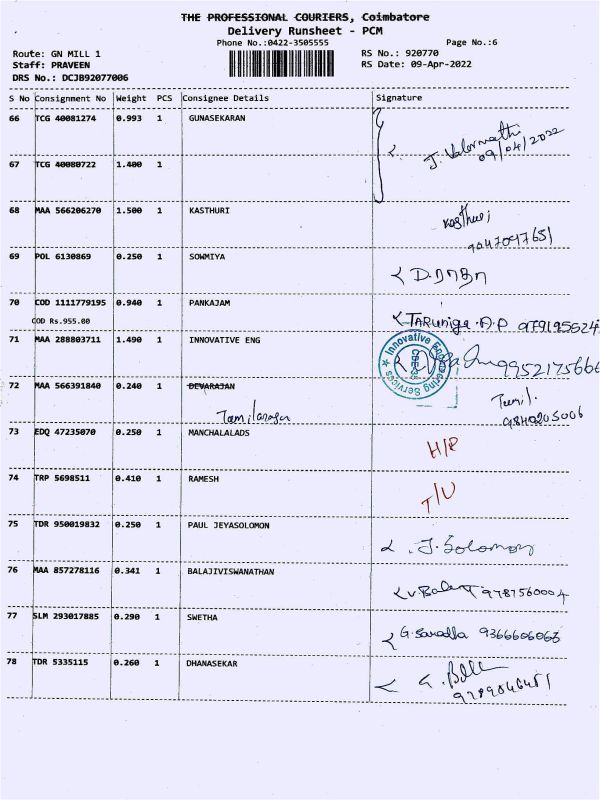 THE PROFESSIONAL COURIERS, Coimbatore
Delivery Runsheet - PCM
Phone No.:0422-3505555
Page No.:6
Route: GN MILL 1
RS No.: 920770
Staff: PRAVEEN
RS Date: 09-Apr-2022
DRS No.: DCJB92077006
S No Consignment No Weight PCS Consignee Details Signature
66 TCG 40081274 0.993 1 GUNASEKARAN
09/04/2022
67 TCG 40080722 1.400 1
68 MAA 566206270 1.500 1 KASTHURI Kasthuri
9047097651
69 POL 6130869 0.250 1 SOWMIYA
70 COD 1111779195 0.940 1 PANKAJAM Taruniga .A.P
COD Rs.955.00
71 MAA 288803711 1.490 1 INNOVATIVE ENG
Innovative Engineering Services
CBE
72 MAA 566391840 0.240 1 DEVARAJAN Tamil.
9840205006
73 EDQ 47235070 0.250 1 MANCHALALADS H/R
74 TRP 5698511 0.410 1 RAMESH T/U
75 TDR 950019832 0.250 1 PAUL JEYASOLOMON J. Solomon
76 MAA 857278116 0.341 1 BALAJIVISWANATHAN 9787560004
77 SLM 293017885 0.290 1 SWETHA G. Saradha 9366606063
78 TDR 5335115 0.260 1 DHANASEKAR